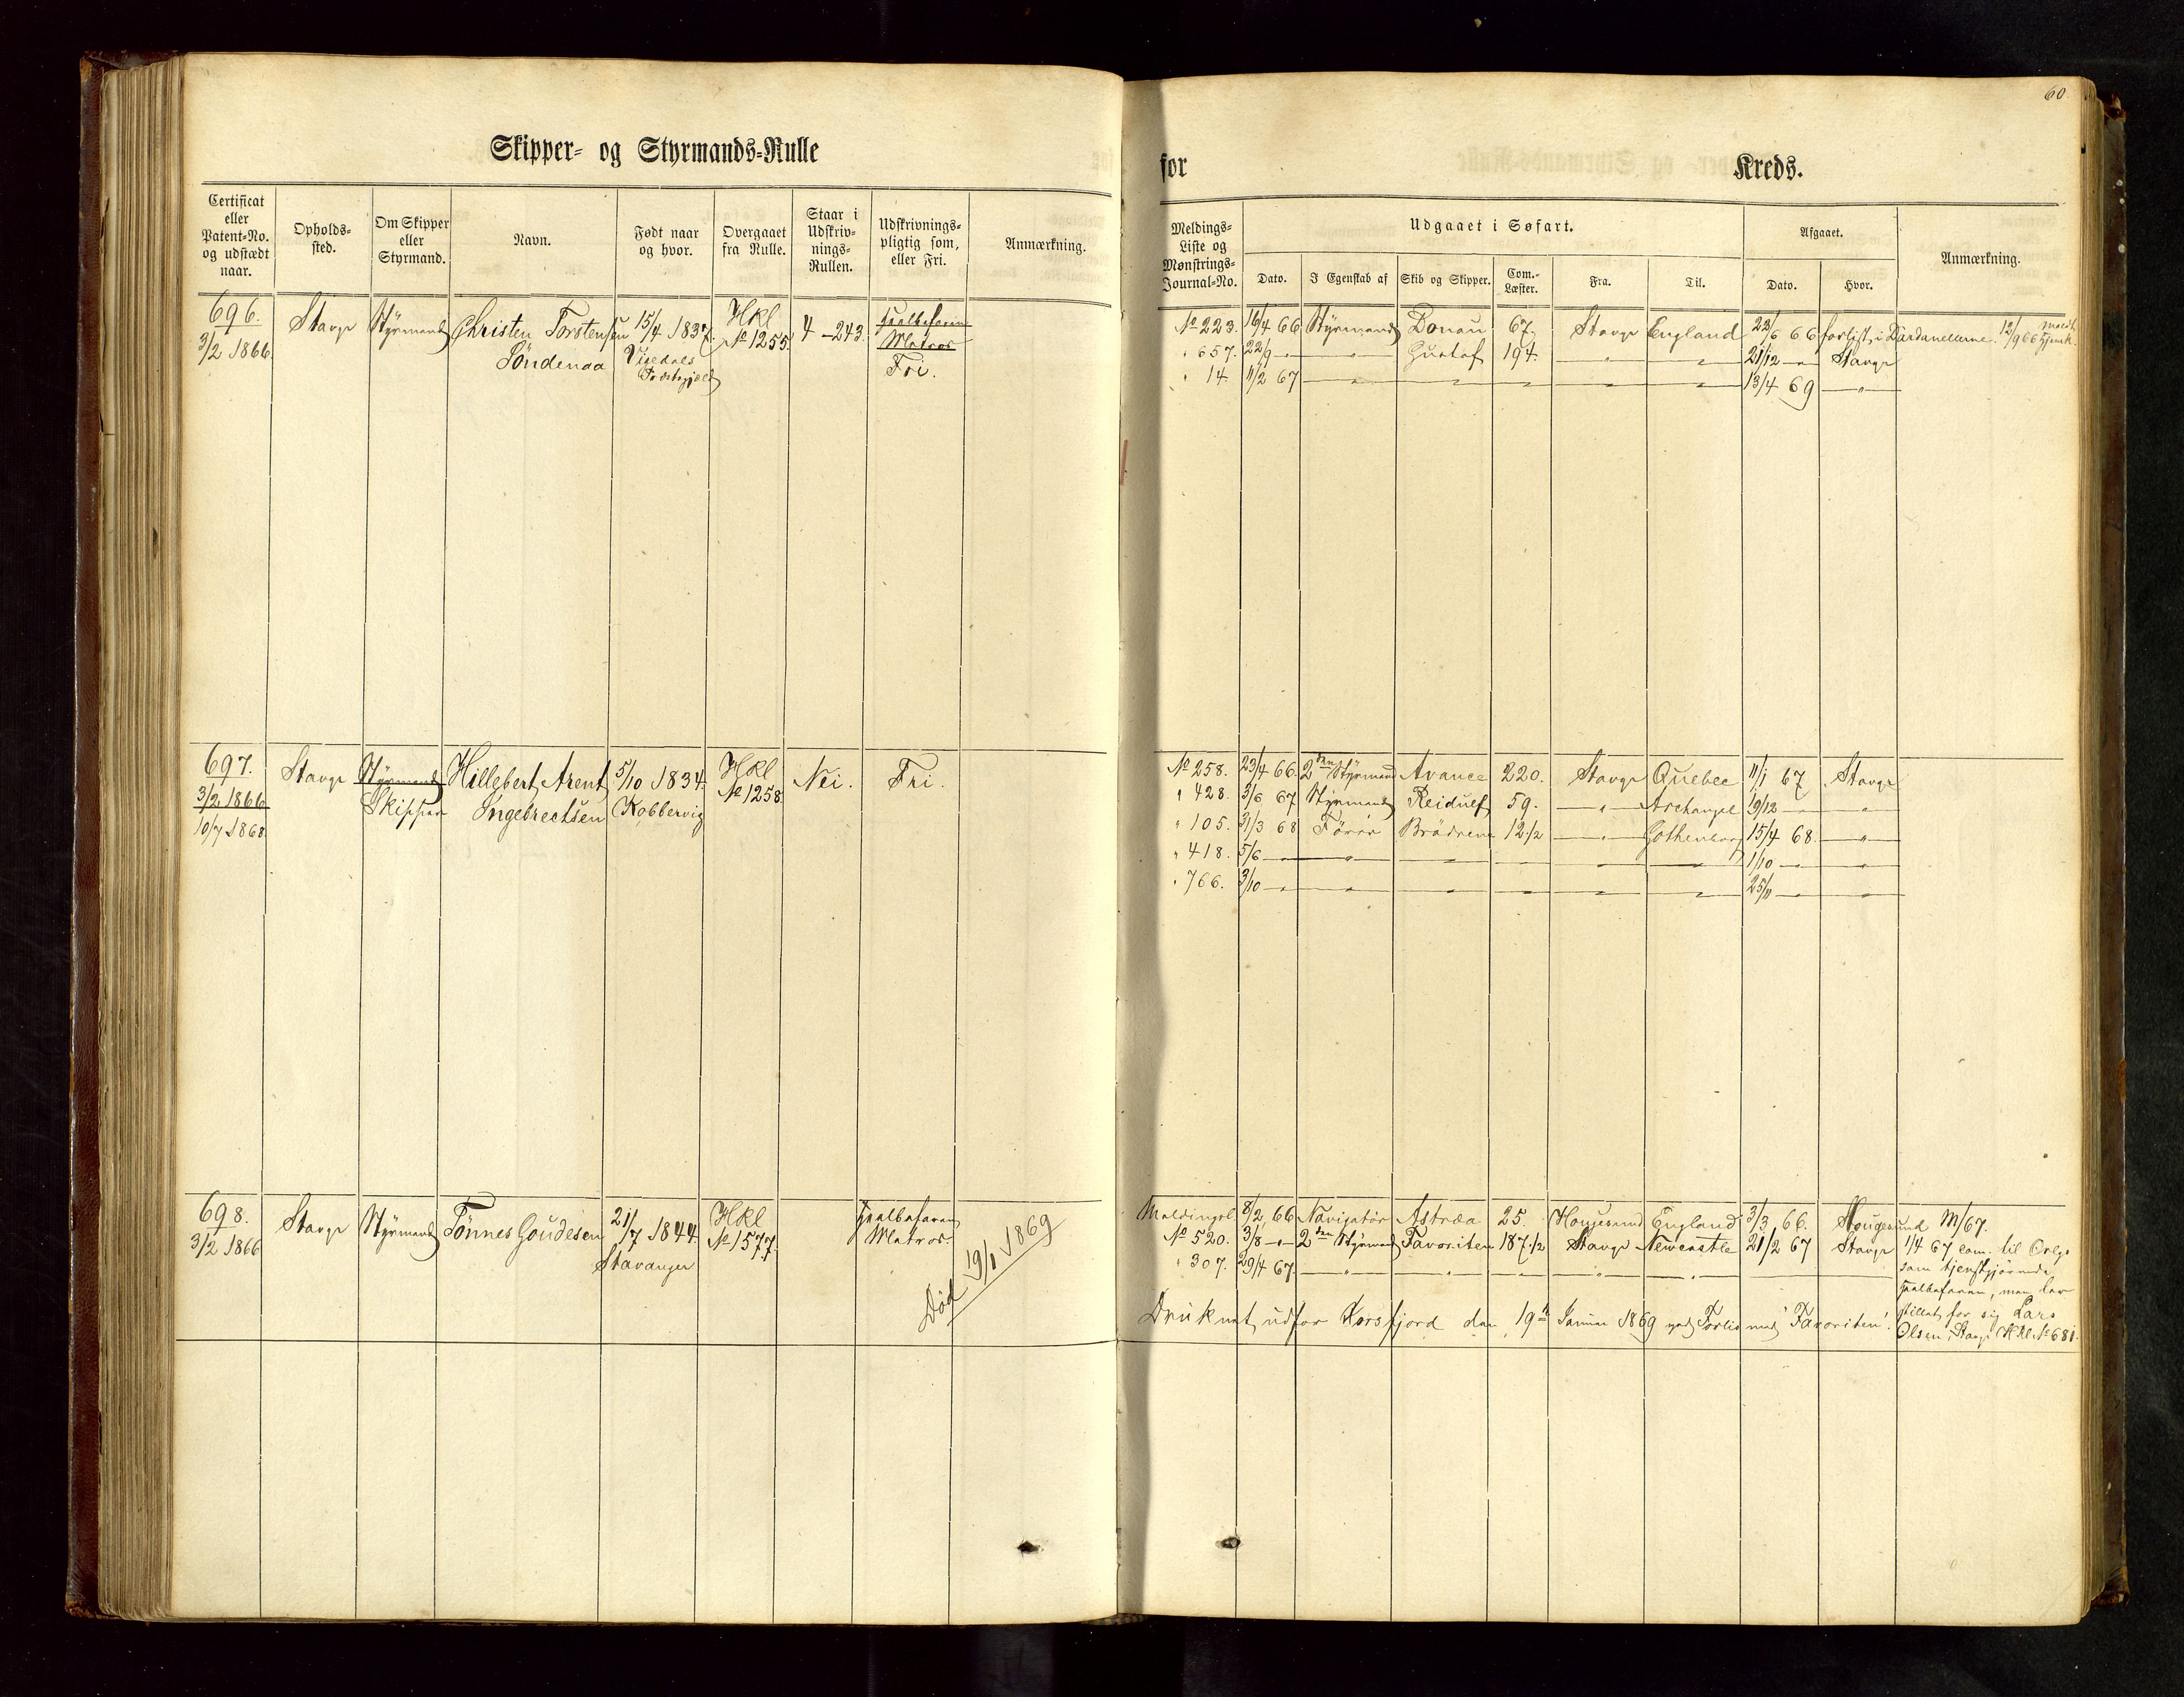 60.
Skipper- og Styrmands-Rulle
for Kreds.
Certificat eller Patent-No. og udstædt naar.
Opholds-sted.
Om Skipper eller Styrmand.
Navn.
Født naar og hvor.
Overgaaet fra Rulle.
Staar i Udskriv-nings-Rullen.
Udskrivnings-pligtig som, eller Fri.
Anmærkning.
Meldings-Liste og Mønstrings-Journal-No.
Udgaaet i Søfart.
Dato.
I Egenskab af
Skib og Skipper.
Com.-Læster.
Fra.
Til.
Afgaaet.
Dato.
Hvor.
Anmærkning.
696. Stavgr Styrmand Christen Torstensen 15/4 1837. Hkl 4 - 243. Halvbefaren
3/2 1866. Söndenaa Vigedals No 1255. Matros
Præstegjeld Fri.
No 223. 16/4 66 Styrmand Donau 67. Stavgr England 23/6 66 forlist i Dardanellerne. 12/9 66
" 657. 22/9 - " Gustaf 194. " " 21/12 - Stavgr
" 14. 11/2 67 " " " " " 13/4 69 "
697. Stavgr Styrmand Hillebert Arent 5/10 1834. Hkl Nei. Fri.
3/2 1866 Skipper Ingebrechtsen Kobbervig No 1258
10/7 1868
No 258. 23/4 66. 2den Styrmand Avance 220. Stavgr Quebec 11/1 67 Stavgr
" 428. 3/6 67 Styrmand Reidulf 59. " Archangel 19/12 - "
" 105. 31/3 68 Förer Brödrene 12 1/2 " Gothenborg 15/4 68. "
" 418. 5/6 - " " " " " 1/10 - "
" 766. 3/10 - " " " " " 25/11 - "
698. Stavgr Styrmand Tönnes Goudesen 21/7 1844. Hkl Halvbefaren
3/2 1866 Stavanger No 1577. Matros.
Död 19/1 1869
Meldingsl. 8/2 66 Navigatör Astræa 25. Hougesund England 3/3 66. Hougesund M/67.
No 520. 3/8 - 2den Styrmand Favoriten 187 1/2 Stavgr Newcastle 21/2 67 Stavgr 1/4 67 com. til Orlgs
" 307. 29/4 67. " " " " " som tjenstgjörende
Halvbefaren, men har
Druknet udfor Korsfjord den 19de Januar 1869 ved Forlis med "Favoriten". stillet for sig Lars
Olsen, Stavgr Hkl No 681.